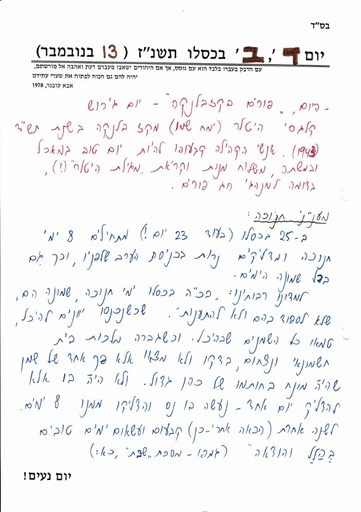 בס"ד
יום ד', ב' בכסלו תשנ"ז (13 בנובמבר)
עם הדבק בעברו בלבד הוא עם גוסס, אך אם היהודים ישאבו מעברם דעת ואהבה אל מורשתם,
יהיה להם גם הכוח לפתוח את שערי עתידם
אבא קובנר, 1978
- היום, "פורים בקזבלנקה" - יום גירוש
קלגסי היטלר (ימח שמו) מקזבלנקה בשנת תש"ד
(1943). אנשי הקהילה קבעוהו להיות יום טוב במאכל
ובמשתה, משלוח מנות וקריאת "מגילת היטלר" (!),
בדומה למנהגי חג פורים.
מענייני חנוכה:
ב-25 בכסלו (בעוד 23 יום!) מתחילים 8 ימי
חנוכה ומדליקים נרות בכניסת הערב שלפניו, וכך גם
בכל שמונה הימים.
למדונו רבותינו: "בכ"ה בכסלו ימי חנוכה, שמונה הם,
שלא לספוד בהם ולא להתענות. שכשנכנסו יוונים להיכל,
טמאו כל השמנים שבהיכל. וכשגברה מלכות בית
חשמונאי ונצחום, בדקו ולא מצאו אלא פך אחד של שמן
שהיה מונח בחותמו של כהן גדול. ולא היה בו אלא
להדליק יום אחד - נעשה בו נס והדליקו ממנו 8 ימים.
לשנה אחרת (הבאה אחרי-כן) קבעום ועשאום ימים טובים
בהלל והודאה" (גמרא - מסכת שבת, כא:)
יום נעים!